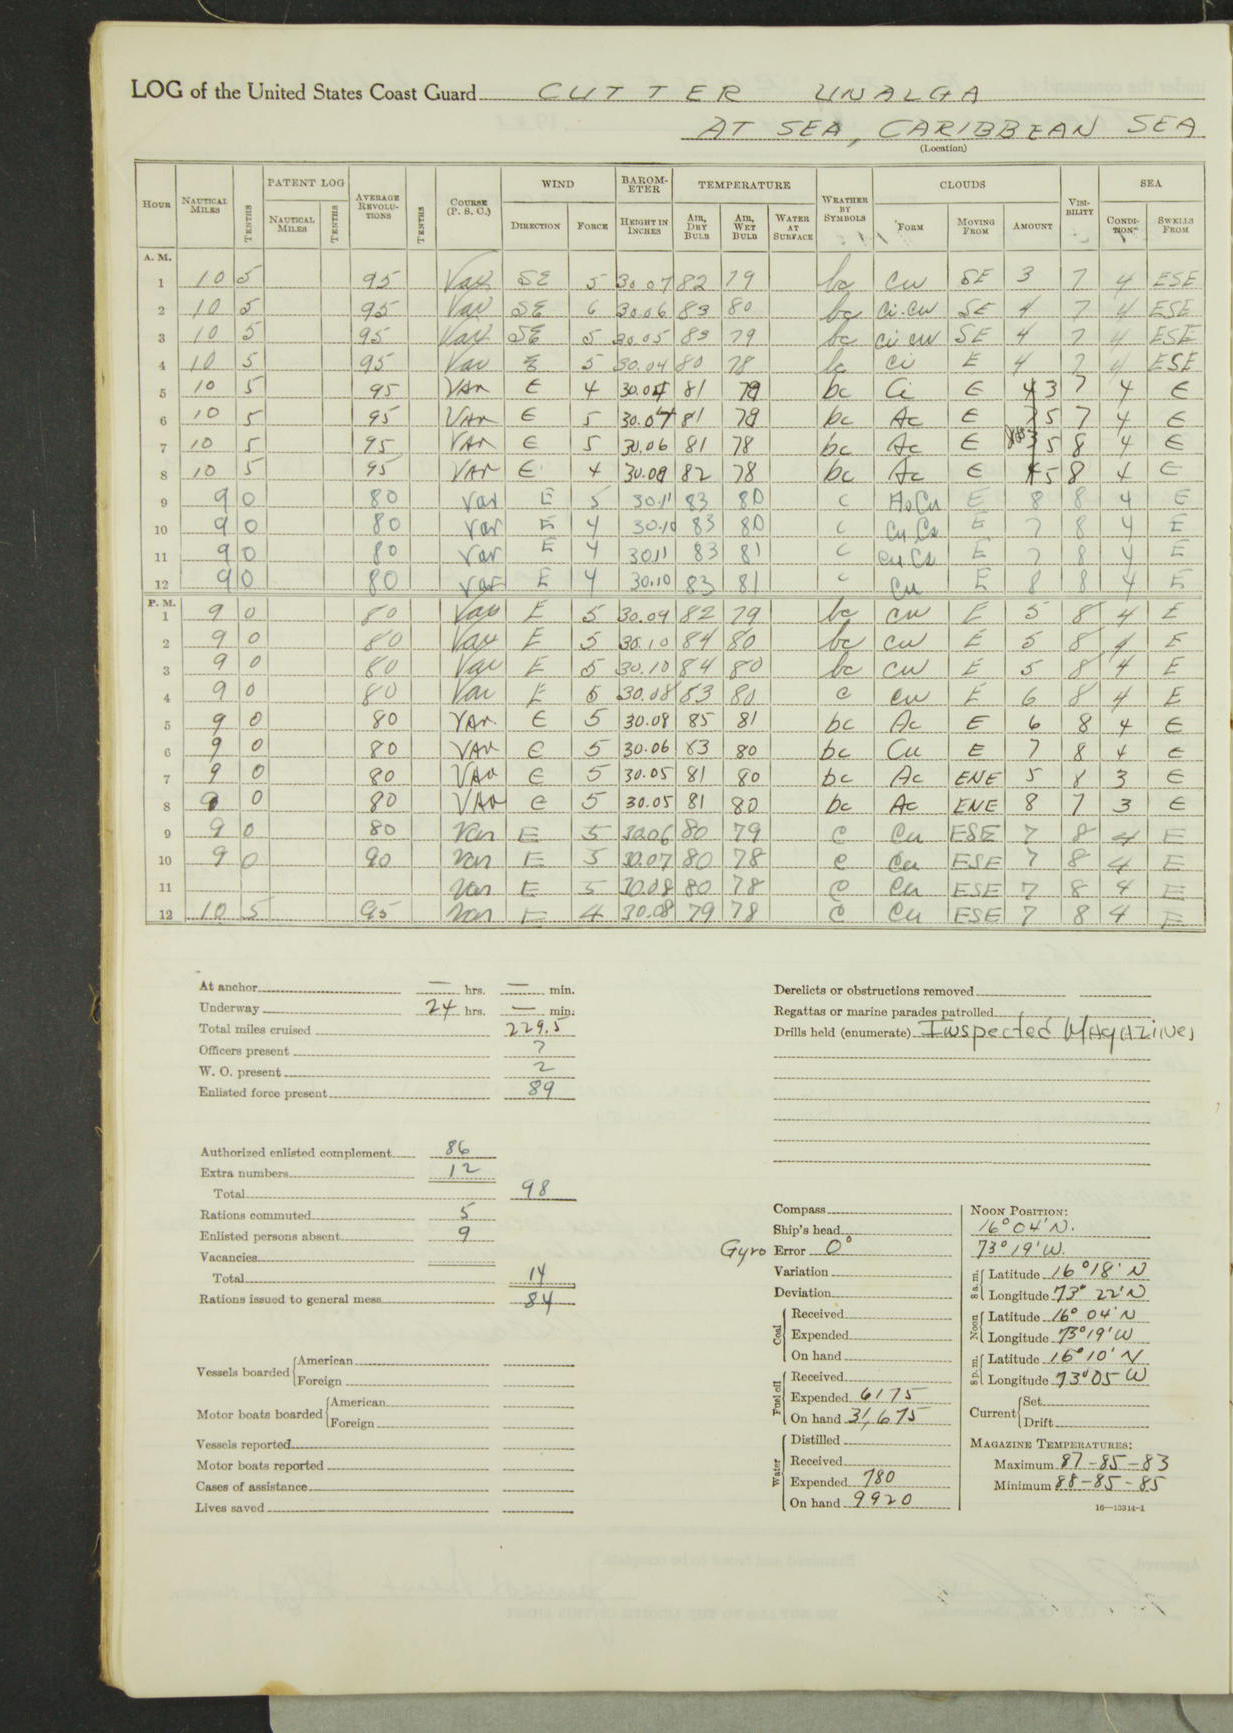 LOG of the United States Coast Guard CUTTER UNALGA
AT SEA, CARIBBEAN SEA
(Location)
HOUR NAUTICAL MILES TENTHS PATENT LOG NAUTICAL MILES TENTHS AVERAGE REVOLUTIONS TENTHS COURSE (P. S. C.) WIND DIRECTION FORCE BAROMETER HEIGHT IN INCHES TEMPERATURE AIR, DRY BULB AIR, WET BULB WATER AT SURFACE WEATHER BY SYMBOLS CLOUDS FORM MOVING FROM AMOUNT VISIBILITY SEA CONDITION SWELLS FROM
A. M.
1 10 5 95 Var SE 5 30.07 82 79 bc Cu SE 3 7 4 ESE
2 10 5 95 Var SE 6 30.06 83 80 bc ci.cu SE 4 7 4 ESE
3 10 5 95 Var SE 5 30.05 83 79 bc ci cu SE 4 7 4 ESE
4 10 5 95 Var E 5 30.04 80 78 bc ci E 4 7 4 ESE
5 10 5 95 VAR E 4 30.04 81 79 bc Ci E 3 7 4 E
6 10 5 95 VAR E 5 30.04 81 79 bc Ac E 5 7 4 E
7 10 5 95 VAR E 5 30.06 81 78 bc Ac E 5 8 4 E
8 10 5 95 VAR E 4 30.08 82 78 bc Ac E 5 8 4 E
9 9 0 80 Var E 5 30.11 83 80 c E 8 8 4 E
10 9 0 80 Var E 4 30.10 83 80 c Cu Cs E 7 8 4 E
11 9 0 80 Var E 4 30.11 83 81 c Cu Cs E 7 8 4 E
12 9 0 80 Var E 4 30.10 83 81 c Cu E 8 8 4 E
P. M.
1 9 0 80 Var E 5 30.09 82 79 bc cu E 5 8 4 E
2 9 0 80 Var E 5 30.10 84 80 bc cu E 5 8 4 E
3 9 0 80 Var E 5 30.10 84 80 bc cu E 5 8 4 E
4 9 0 80 Var E 5 30.08 83 80 c cu E 6 8 4 E
5 9 0 80 VAR E 5 30.08 85 81 bc Ac E 6 8 4 E
6 9 0 80 VAR E 5 30.06 83 80 bc Cu E 7 8 4 E
7 9 0 80 VAR E 5 30.05 81 80 bc Ac ENE 5 8 3 E
8 9 0 80 VAR E 5 30.05 81 80 bc Ac ENE 8 7 3 E
9 9 0 80 Var E 5 30.06 80 79 c Cu ESE 7 8 4 E
10 9 0 90 Var E 5 30.07 80 78 c Cu ESE 7 8 4 E
11 Var E 5 30.08 80 78 c Cu ESE 7 8 4 E
12 10 5 95 Var E 4 30.08 79 78 c Cu ESE 7 8 4 E
At anchor — hrs. — min.
Underway 24 hrs. — min.
Total miles cruised 229.5
Officers present 7
W. O. present 2
Enlisted force present 89
Authorized enlisted complement 86
Extra numbers 12
Total 98
Rations commuted 5
Enlisted persons absent 9
Vacancies
Total 14
Rations issued to general mess 84
Vessels boarded American
Foreign
Motor boats boarded American
Foreign
Vessels reported
Motor boats reported
Cases of assistance
Lives saved
Derelicts or obstructions removed
Regattas or marine parades patrolled
Drills held (enumerate) Inspected Magazines
Compass
Ship's head
Gyro Error 0°
Variation
Deviation
Coal Received
Expended
On hand
Fuel oil Received
Expended 6175
On hand 31,675
Water Distilled
Received
Expended 780
On hand 9920
NOON POSITION:
16° 04' N.
73° 19' W.
8 a. m. Latitude 16° 18' N
Longitude 73° 22' N
Noon Latitude 16° 04' N
Longitude 73° 19' W
8 p. m. Latitude 16° 10' N
Longitude 73° 05 W
Current Set
Drift
MAGAZINE TEMPERATURES:
Maximum 87-85-83
Minimum 88-85-85
16—13314-1